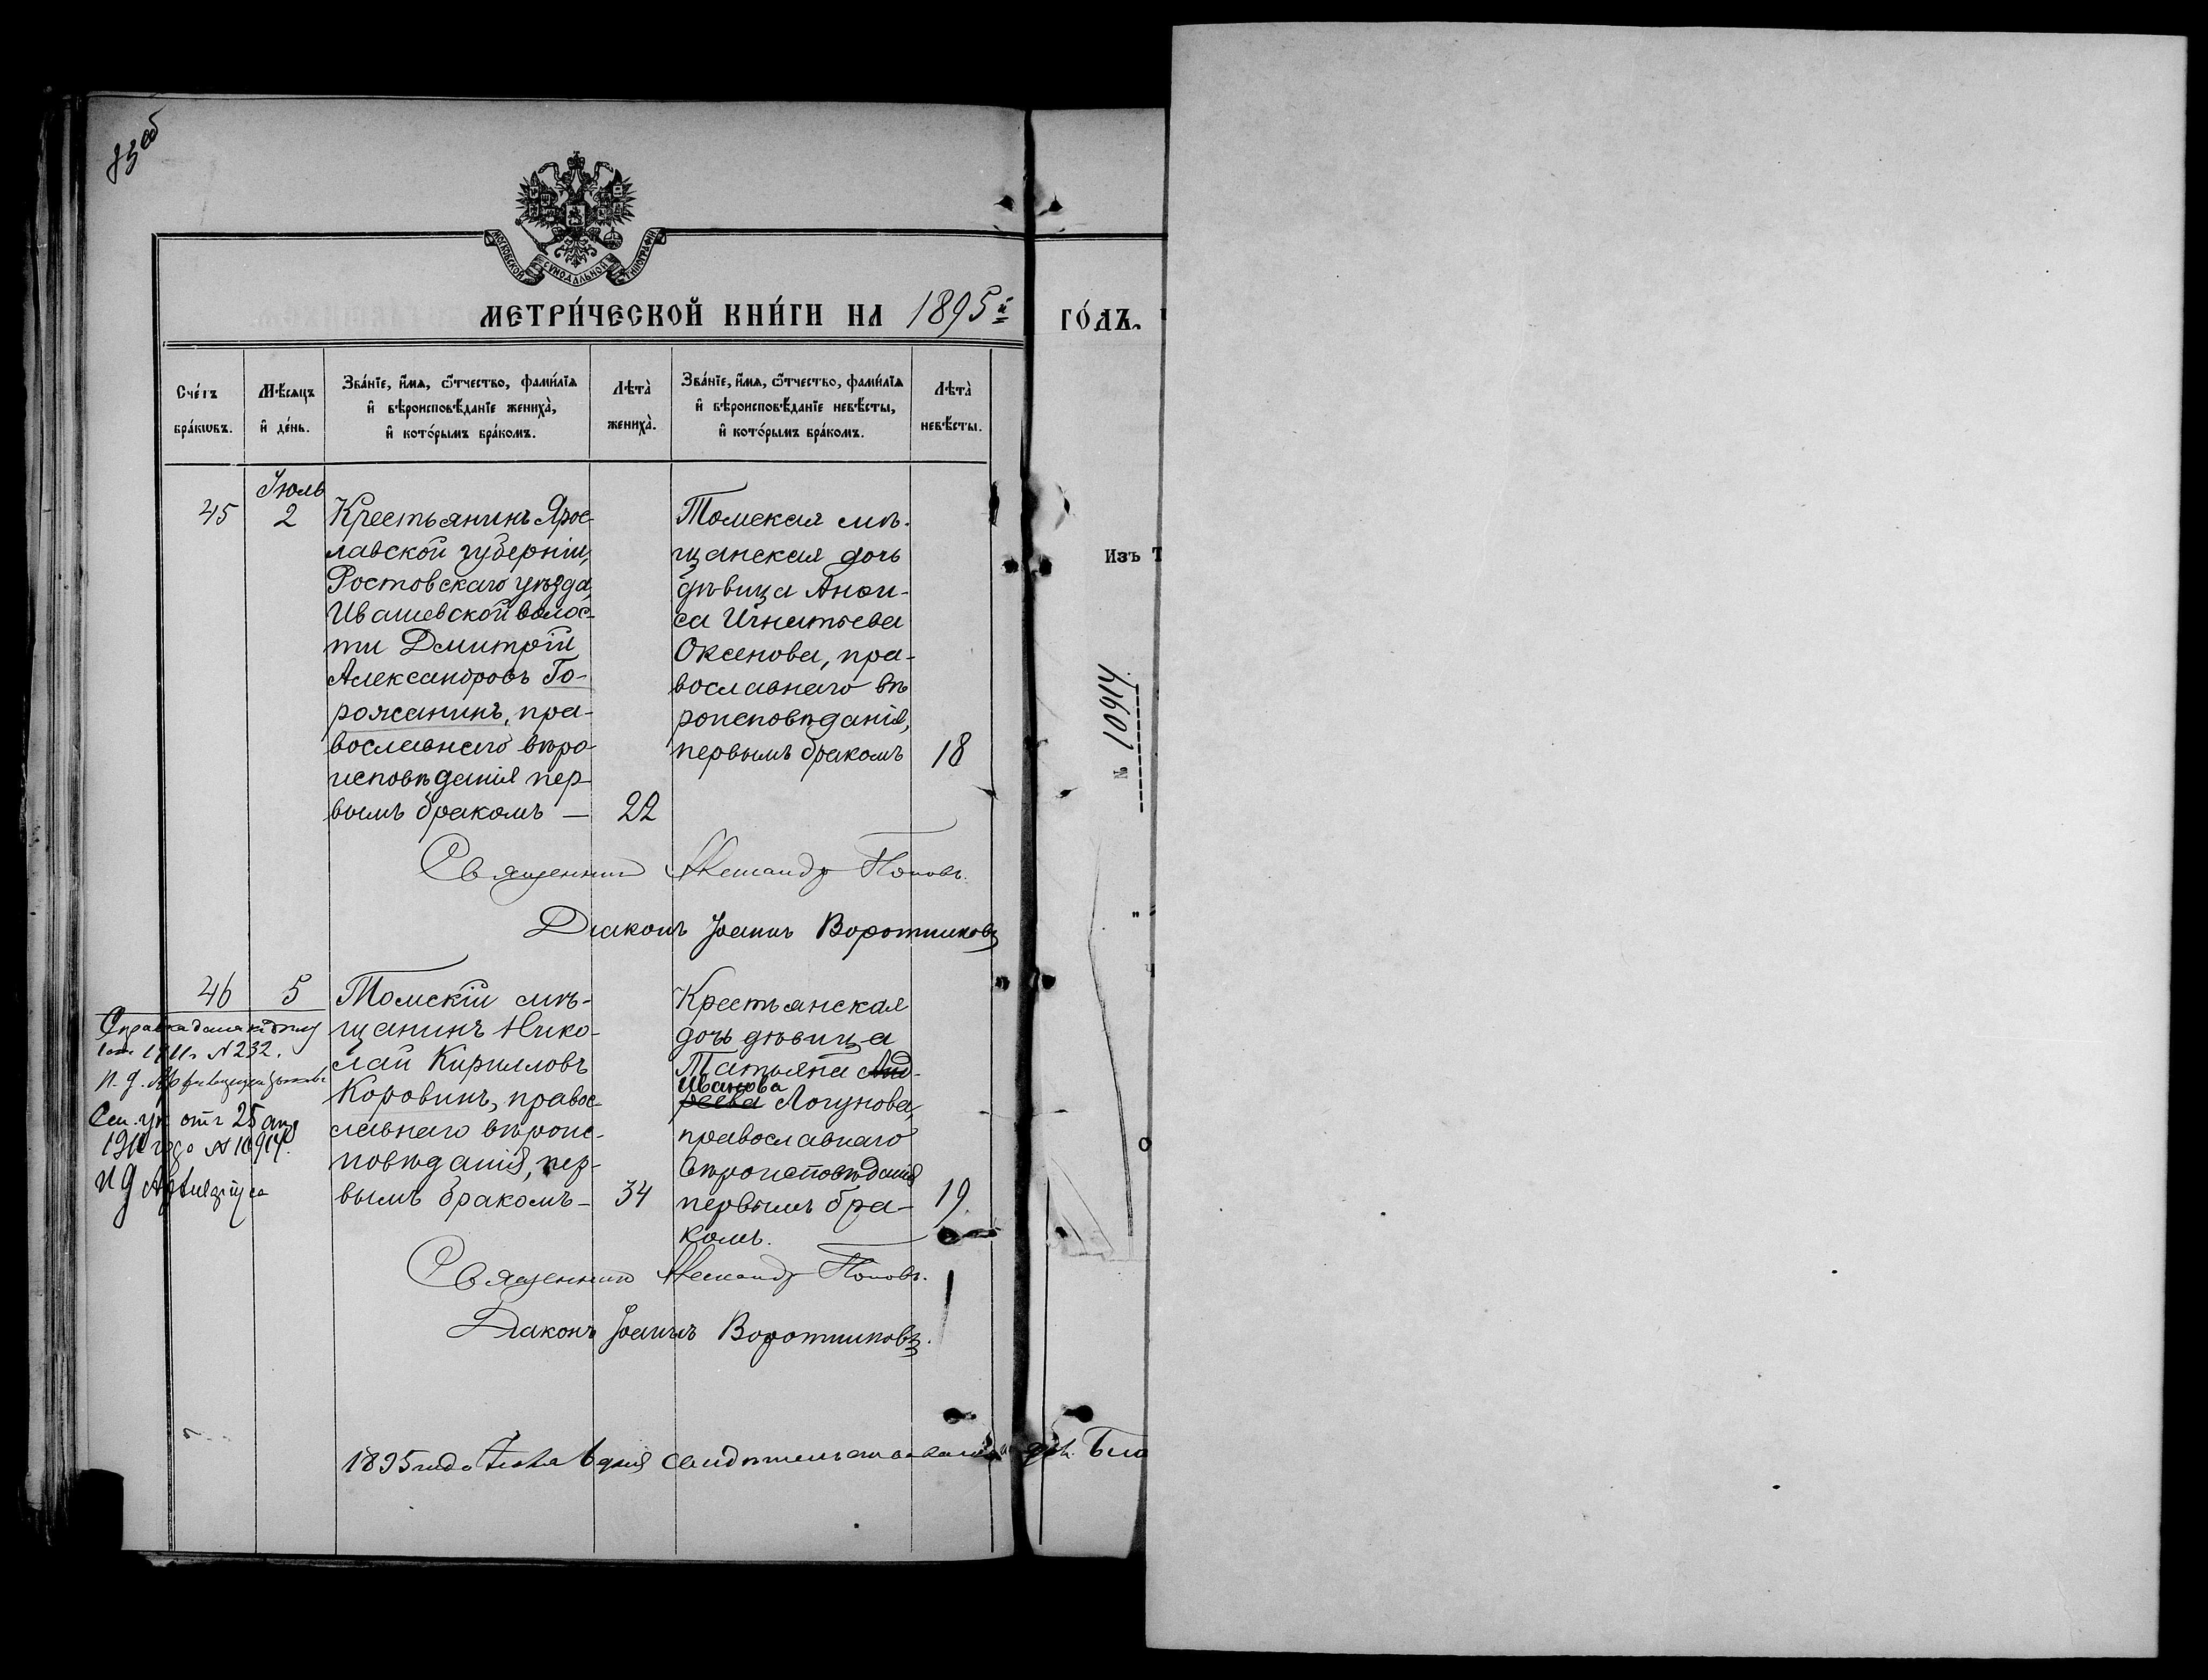 83об
МОСКОВСКОЙ СѴНОДАЛЬНОЙ ТИПОГРАФІИ
МЕТРИ́ЧЕСКОЙ КНИ́ГИ НА 1895й ГО́ДЪ.
Сче́тъ бра́кωвъ.
Мѣ́сяцъ и҆ де́нь.
Зва́нїе, и҆́мѧ, ѻ҆́тчество, фами́лїѧ
и҆ вѣроисповѣ́данїе жениха̀,
и҆ кото́рымъ бра́комъ.
Лѣта̀ жениха̀.
Зва́нїе, и҆́мѧ, ѻ҆́тчество, фами́лїѧ
и҆ вѣроисповѣ́данїе невѣ́сты,
и҆ кото́рымъ бра́комъ.
Лѣта̀ невѣ́сты.
Іюль
45
2
Крестьянинъ Ярос-
лавской губерніи,
Ростовскаго уѣзда,
Ивашевской волос-
ти Дмитрій
Александровъ Го-
рожанинъ, пра-
вославнаго вѣро-
исповѣданія пер-
вымъ бракомъ —
22
Томская мѣ-
щанская дочь
дѣвица Анѳи-
са Игнатьева
Оксенова, пра-
вославнаго вѣ
роисповѣданія,
первымъ бракомъ
18
Священник Александр Поповъ.
Діаконъ Іоаннъ Воротниковъ
46
5
Томскій мѣ-
щанинъ Нико-
лай Кирилловъ
Коровинъ, правос-
лавнаго вѣроис-
повѣданія, пер-
вымъ бракомъ —
34
Крестьянская
дочь дѣвица
Татьяна Анд-
Иванова
реева Логунова,
православнаго
вѣроисповѣданія
первымъ бра-
комъ.
19.
Справка дана
1911г N 232.
И. д.
отъ 25 апр
1911 года N 10914.
И д
Священник Александр Поповъ.
Діаконъ Іоаннъ Воротниковъ.
1895 года Іюля 6 дня
Изъ Т
№ 10914.